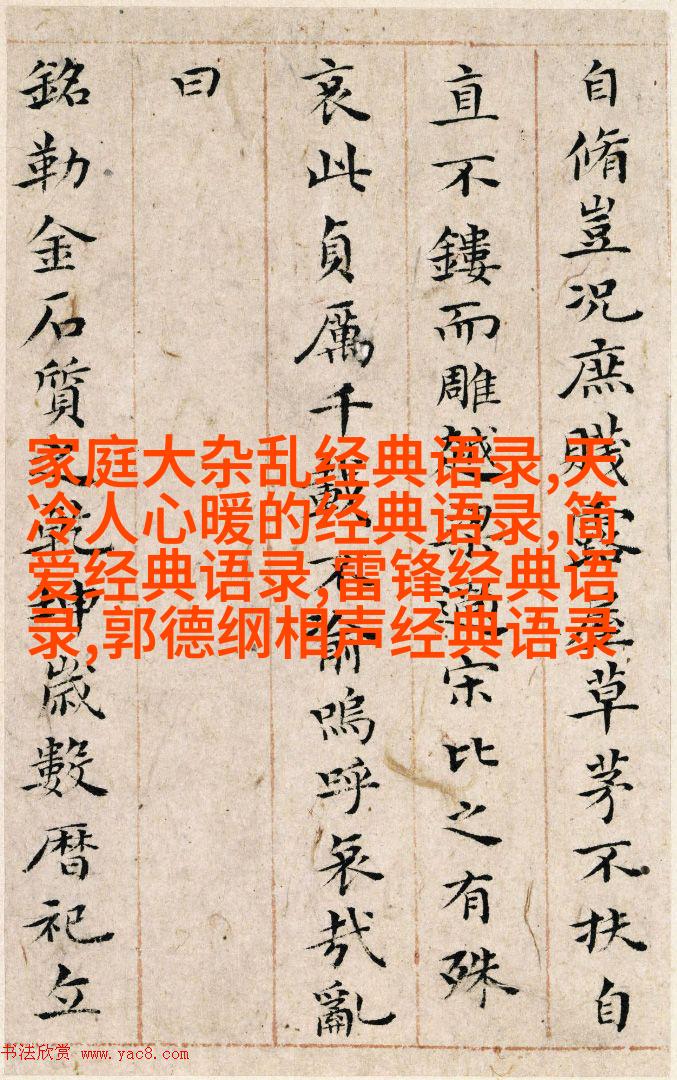 自脩豈况庶賤露屋草茅不扶自
直不鏤而雕越梁過宋比之有殊
哀此貞厲千載不渝嗚呼哀哉亂
曰
銘勒金石質之乾坤歲數暦祀立
家庭大杂乱经典语录,天
冷人心暖的经典语录,简
爱经典语录,雷锋经典语
录,郭德纲相声经典语录
书法欣赏 www.yac8.com